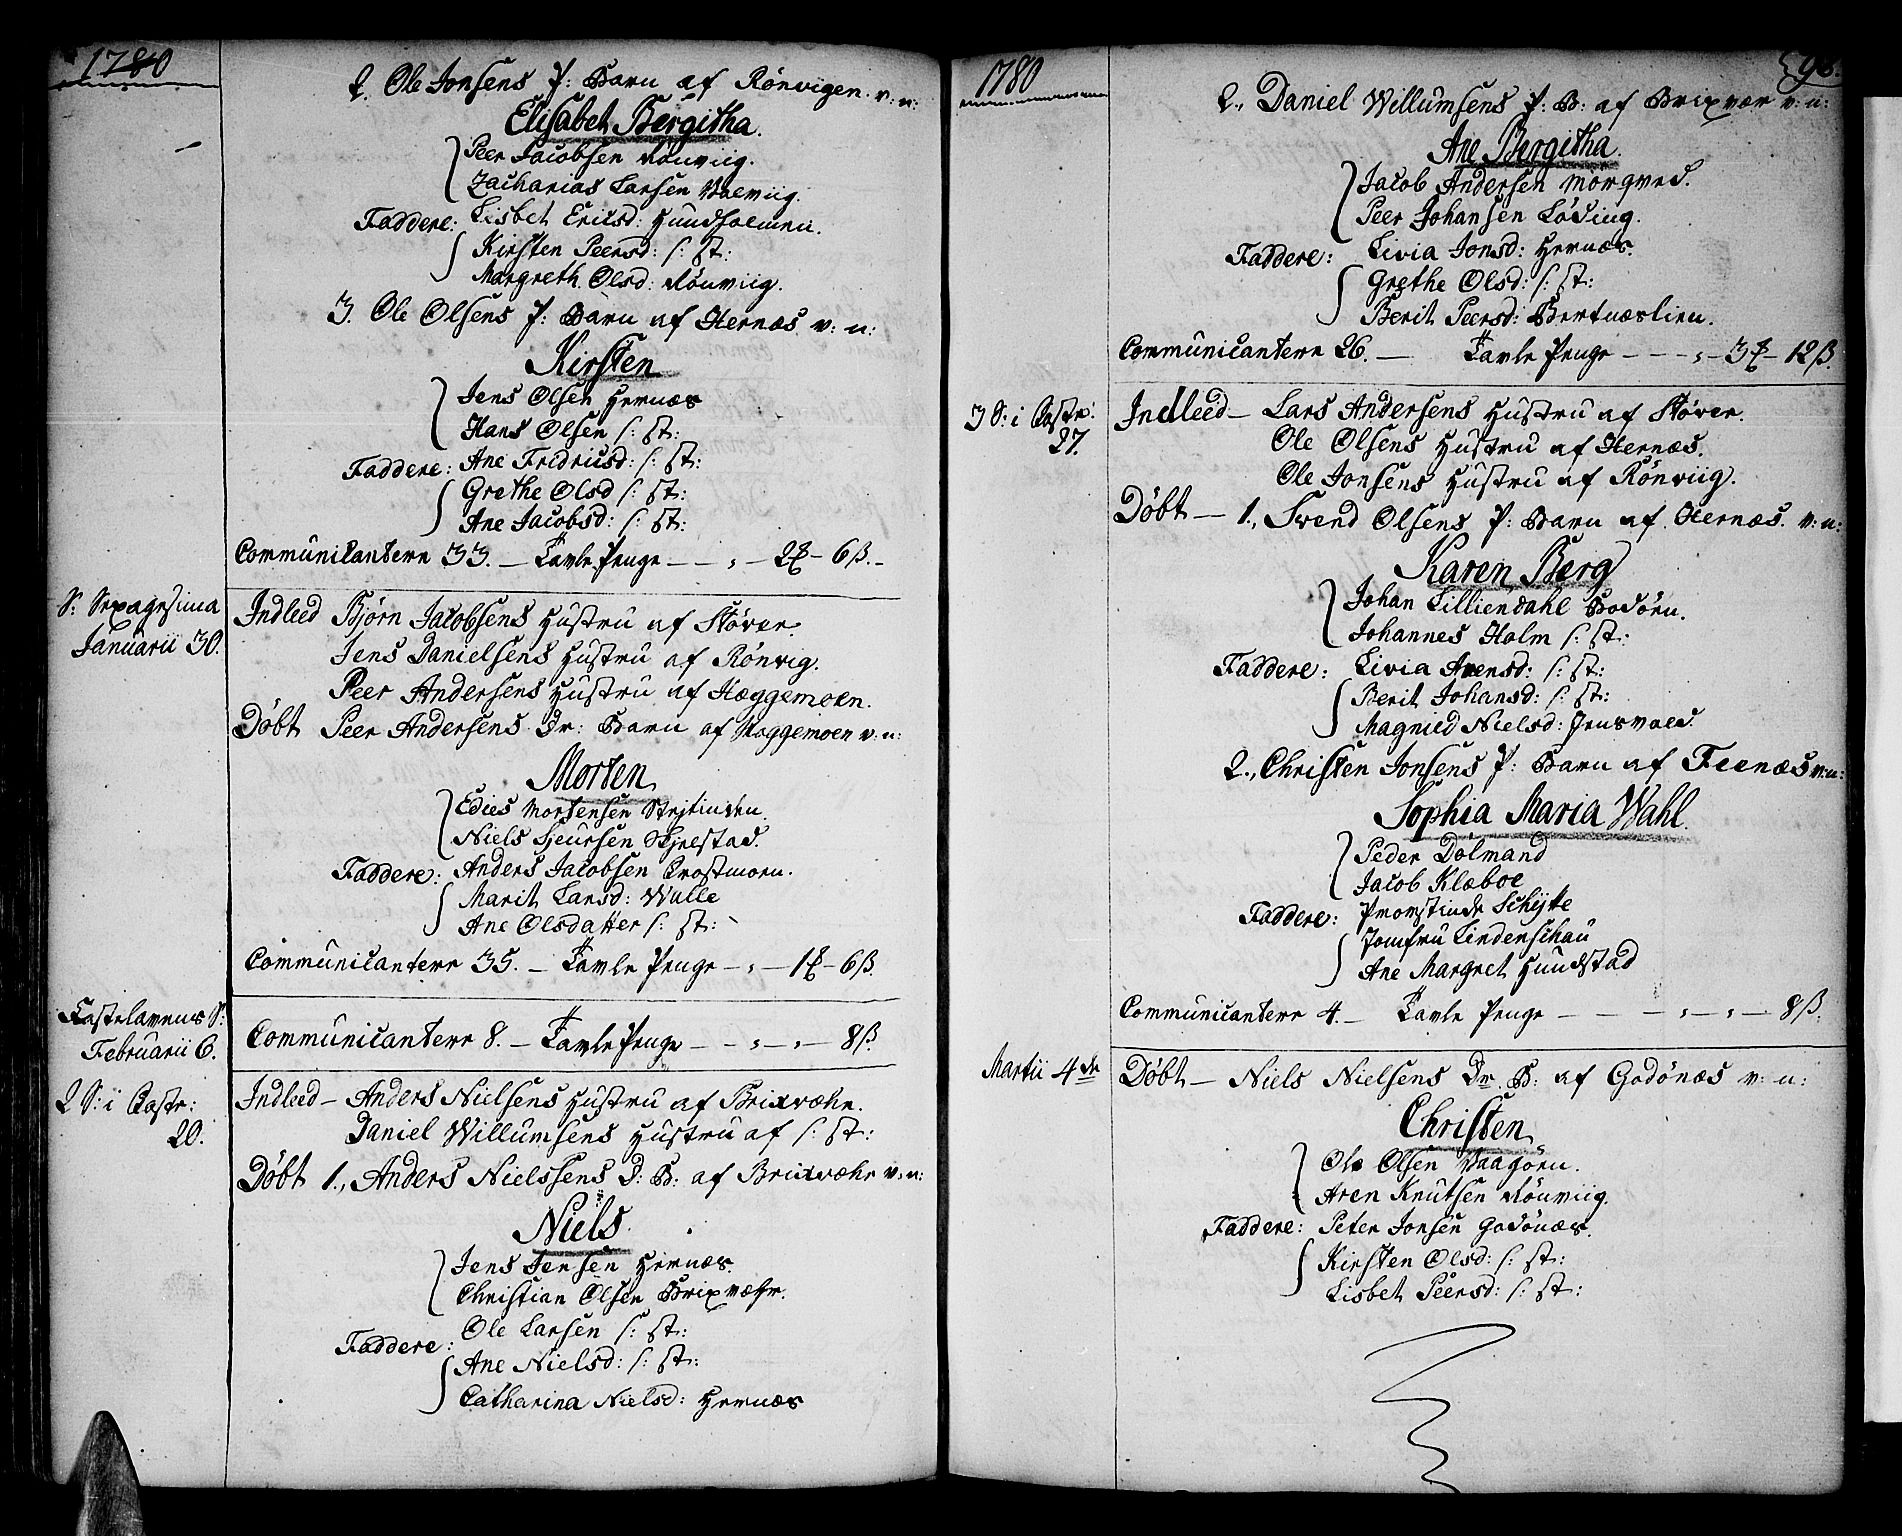 1780
2. Ole Jonsens P: Barn af Rönvigen v: n:
Elisabet Bergitha.
Peer Jacobsen Rönviig.
Zacharias Larsen Valviig.
Faddere: Lisbet Ericsd: Hundholmen.
Kirsten Peersd: s: st:
Margreth Olsd: Rönviig.
3. Ole Olsens P: Barn af Hernæs v: n:
Kirsten
Jens Olsen Hernæs
Hans Olsen s: st:
Faddere: Ane Fridricsd: s: st:
Grethe Olsd s: st:
Ane Jacobsd: s: st:
Communicantere 33. — Tavle Penge — — „ — 2 — 6 ß. —
S: Sexagesima
Januarii 30.
Indleed Bjørn Jacobsens Hustru af Støver.
Jens Danielsens Hustru af Rönvig.
Peer Andersens Hustru af Hæggemoen.
Döbt Peer Andersens Dr: Barn af Hæggemoen v: n:
Morten
Edies Mortensen Strjtinden.
Niels Sjeursen Skjelstad.
Faddere: Anders Jacobsen Prostmoen.
Marit Larsd: Wulle
Ane Olsdatter s: st:
Communicantere 35. — Tavle Penge — „ — 1 — 6 ß.
Fastelavens S:
Februarii 6.
Communicantere 8. — Tavle Penge — — „ — „ — 8 ß.
2 S: i Faste:
20.
Indleed — Anders Nielsens Hustru af Brixvæhr.
Daniel Willumsens Hustru af s: st:
Döbt 1., Anders Nielssens D: B: af Brixvæhr v: n:
Niels
Jens Jensen Hernæs.
Christian Olsen Brixvæhr.
Ole Larsen s: st:
Faddere:
Ane Nielsd: s: st:
Catharina Nielsd: Hernæs
1780
98.
2., Daniel Willumsens P: B: af Brixvær v: n:
Ane Bergitha.
Jacob Andersen Mörqved.
Peer Johansen Löding.
Faddere: Livia Jonsd: Hernæs.
Grethe Olsd: s: st:
Berit Peersd: Bertnæslien.
Communicantere 26. — Tavle Penge — — — „ — 3 — 12 ß.
3 S: i Faste:
27.
Indleed — Lars Andersens Hustru af Støver.
Ole Olsens Hustru af Hernæs.
Ole Jonsens Hustru af Rönviig.
Döbt — 1., Svend Olsens P: Barn af Hernæs. v: n:
Karen Berg
Johan Lilliendahl Bodöen.
Johannes Holm s: st:
Faddere: Livia Arensd: s: st:
Berit Johansd: s: st:
Magnild Nielsd: Jensvold.
2., Christen Jonsens P: Barn af Feenæs v: n:
Sophia Maria Wahl.
Peder Dolmand
Jacob Klæboe
Faddere: Provstinde Schijtte
Jomfru Lindenschau
Ane Margret Hundstad
Communicantere 4. — Tavle Penge — — — „ — „ — 8 ß.
Martii 4de
Döbt — Niels Nielsens Dr. B: af Godönæs v: n:
Christen
Ole Olsen Vaagöen.
Aren Knutsen Rönviig.
Faddere: Peter Jonsen Godönæs.
Kirsten Olsd: s: st:
Lisbet Peersd: s: st: